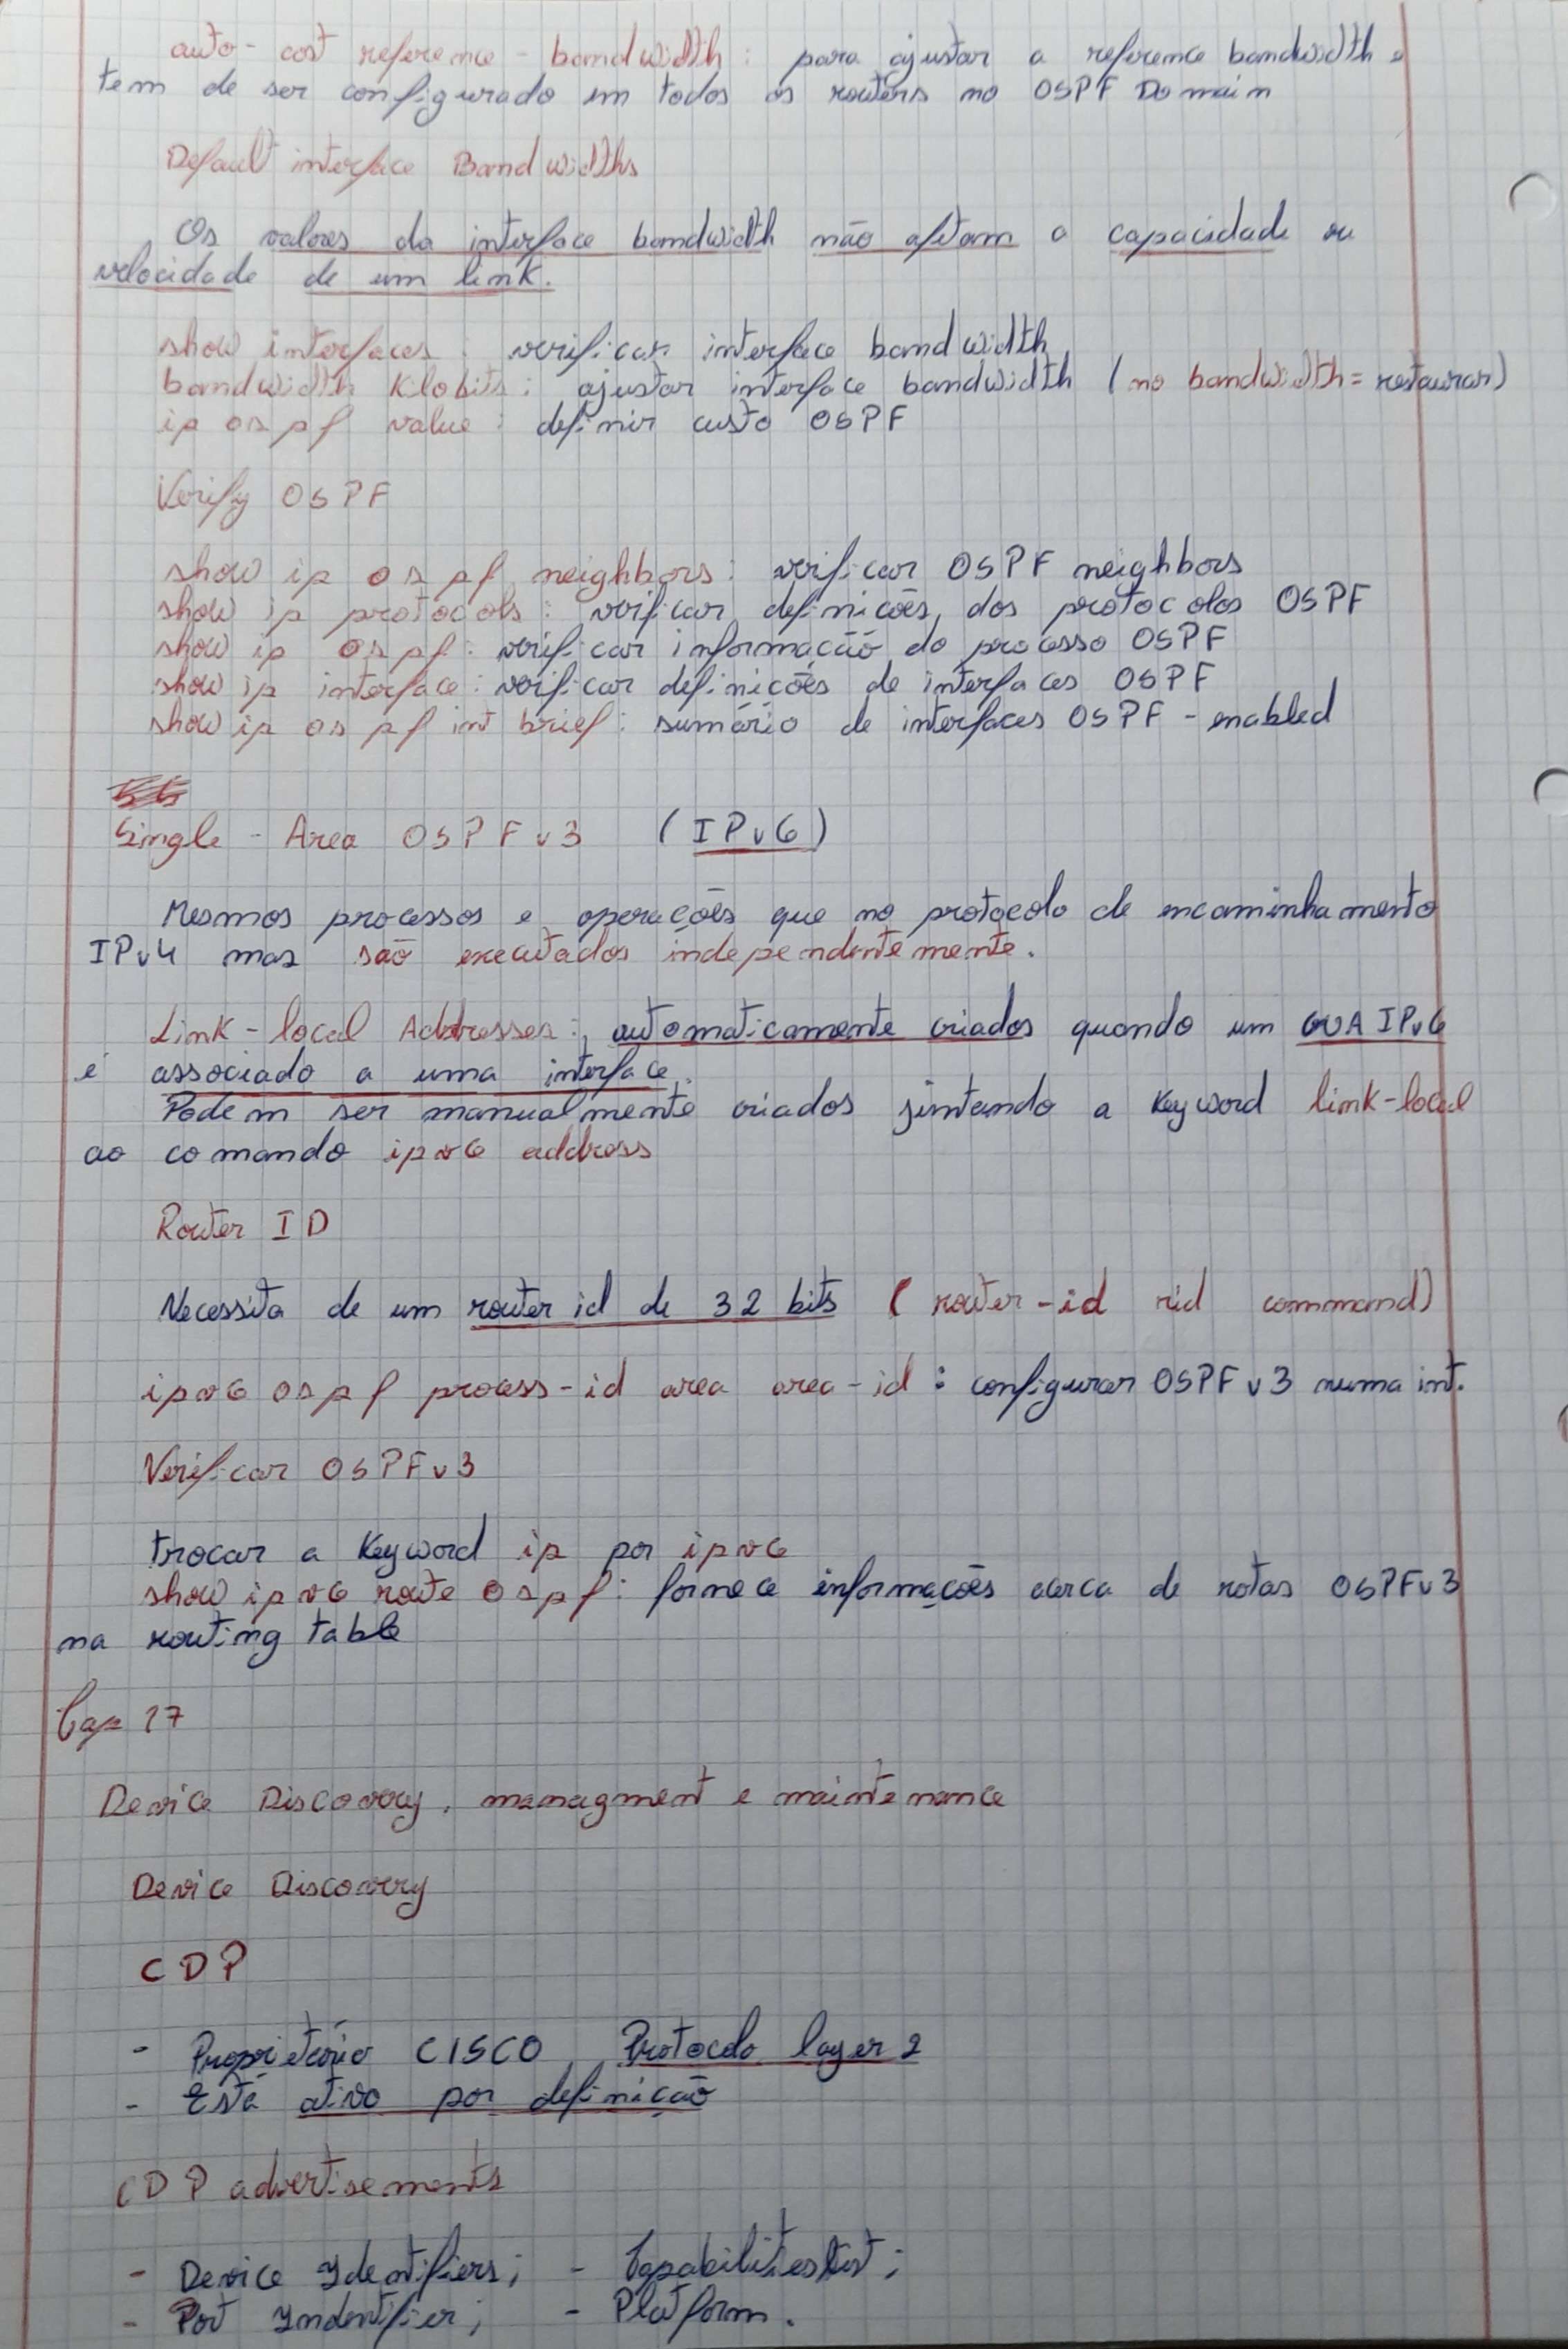 auto-cost reference-bandwidth: para ajustar a reference bandwidth e
tem de ser configurado em todos os routers no OSPF Domain
Default interface Bandwidths
Os valores da interface bandwidth não afetam a capacidade ou
velocidade de um link.
show interfaces: verificar interface bandwidth
bandwidth Klobits: ajustar interface bandwidth (no bandwidth = restaurar)
ip ospf value: definir custo OSPF
Verify OSPF
show ip ospf neighbors: verificar OSPF neighbors
show ip protocols: verificar definições dos protocolos OSPF
show ip ospf: verificar informação do processo OSPF
show ip interface: verificar definições de interfaces OSPF
show ip ospf int brief: sumário de interfaces OSPF-enabled
Single-Area OSPFv3 (IPv6)
Mesmos processos e operações que no protocolo de encaminhamento
IPv4 mas são executados independentemente.
Link-local Addresses: automaticamente criados quando um GUA IPv6
é associado a uma interface.
Podem ser manualmente criados juntando a Keyword link-local
ao comando ipv6 address
Router ID
Necessita de um router id de 32 bits (router-id rid command)
ipv6 ospf process-id area area-id: configurar OSPFv3 numa int.
Verificar OSPFv3
trocar a Keyword ip por ipv6
show ipv6 route ospf: fornece informações acerca de rotas OSPFv3
na routing table
Cap 17
Device Discovery, managment e maintenance
Device Discovery
CDP
- Proprietário CISCO, Protocolo layer 2
- Está ativo por definição
CDP advertisements
- Device Identifiers; - Capabilities list;
- Port Indentifier; - Platform.